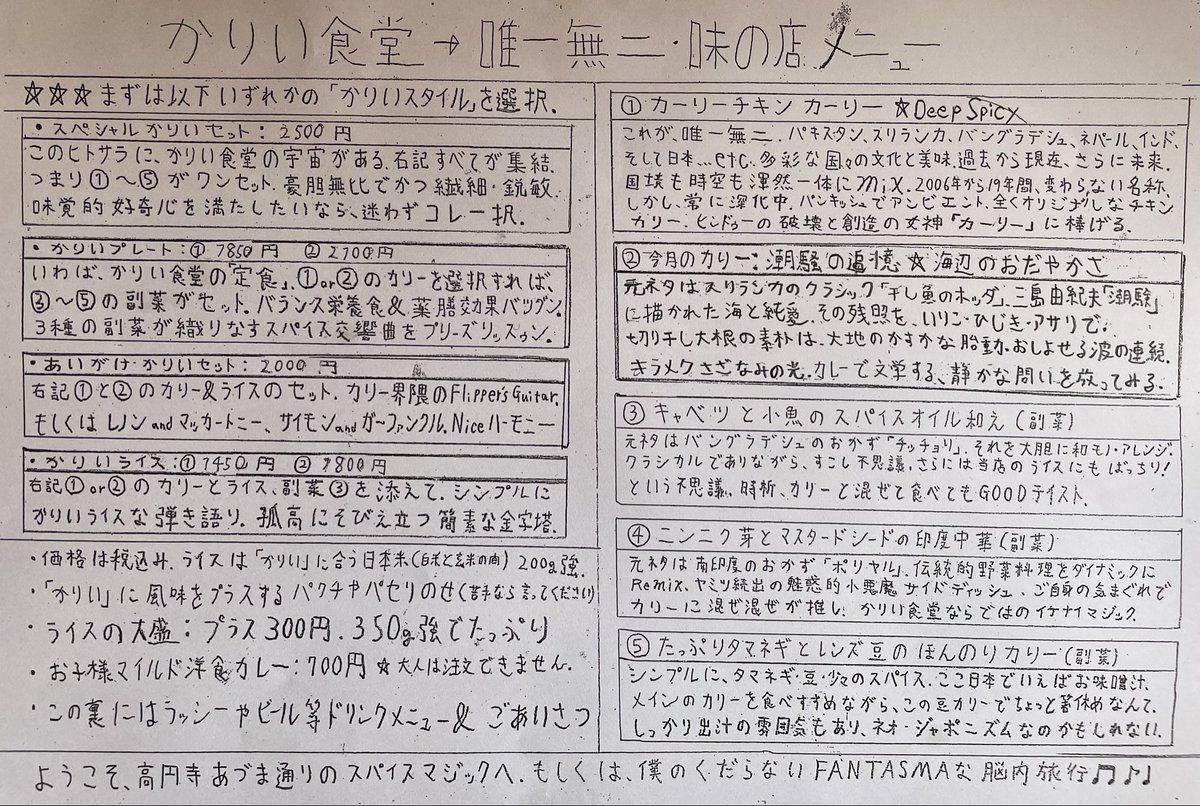 かりい食堂→唯一無二・味の店メニュー
☆☆☆まずは以下いずれかの「かりいスタイル」を選択.
・スペシャルかりいセット：2500円
このヒトサラに、かりい食堂の宇宙がある.右記すべてが集結.
つまり①〜⑤がワンセット.豪胆無比でかつ繊細・鋭敏.
味覚的好奇心を満たしたいなら、迷わずコレ一択.
・かりいプレート：①1850円 ②2100円
いわば、かりい食堂の「定食」、①or②のカリーを選択すれば、
③〜⑤の副菜がセット.バランス栄養食&薬膳効果バツグン.
3種の副菜が織りなすスパイス交響曲をプリーズリッスゥン.
・あいがけ・かりいセット：2000円
右記①と②のカリー&ライスのセット.カリー界隈のFlipper's Guitar.
もしくはレノンandマッカートニー、サイモンandガーファンクル.Niceハーモニー
・かりいライス：①1450円 ②1800円
右記①or②のカリーとライス、副菜③を添えて.シンプルに
かりいライスな弾き語り.孤高にそびえ立つ簡素な金字塔.
・価格は税込み.ライスは「かりい」に合う日本米(白米と玄米の間)200g強.
・「かりい」に風味をプラスするパクチやパセリのせ(苦手なら言ってください)
・ライスの大盛：プラス300円.350g強でたっぷり
・お子様マイルド洋食カレー：700円 ☆大人は注文できません.
・この裏にはラッシーやビール等ドリンクメニュー& ごあいさつ
①カーリーチキンカーリー ☆Deep Spicy
これが、唯一無二.パキスタン、スリランカ、バングラデシュ、ネパール、インド、
そして日本…etc.多彩な国々の文化と美味.過去から現在、さらに未来.
国境も時空も渾然一体にmix.2006年から19年間、変わらない名称.
しかし、常に深化中.パンキッシュでアンビエント.全くオリジナルなチキン
カリー.ヒンドゥーの破壊と創造の女神「カーリー」に捧げる.
②今月のカリー：潮騒の追憶☆海辺のおだやかさ
元ネタはスリランカのクラシック「干し魚のホッダ」.三島由紀夫「潮騒」
に描かれた海と純愛.その残照を、いりこ・ひじき・アサリで.
切り干し大根の素朴は、大地のかすかな胎動.おしよせる波の連続.
キラメクさざなみの光.カレーで文学する、静かな問いを放ってみる.
③キャベツと小魚のスパイスオイル和え(副菜)
元ネタはバングラデシュのおかず「チョッチョリ」.それを大胆に和モノ・アレンジ.
クラシカルでありながら、すこし不思議.さらには当店のライスにもばっちり!
という不思議.時折、カリーと混ぜて食べてもGOODテイスト.
④ニンニク芽とマスタードシードの印度中華(副菜)
元ネタは南印度のおかず「ポリヤル」.伝統的野菜料理をダイナミックに
Remix.ヤミツキ続出の魅惑的小悪魔サイドディッシュ、ご自身の気まぐれで
カリーに混ぜ混ぜが推し.かりい食堂ならではのイケナイマジック.
⑤たっぷりタマネギとレンズ豆のほんのりカリー(副菜)
シンプルに、タマネギ・豆・少々のスパイス.ここ日本でいえばお味噌汁.
メインのカリーを食べすすめながら、この豆カリーでちょっと箸休めなんて.
しっかり出汁の雰囲気もあり、ネオ・ジャポニズムなのかもしれない.
ようこそ、高円寺あづま通りのスパイスマジックへ.もしくは、僕のくだらないFANTASMAな脳内旅行♫♪♩